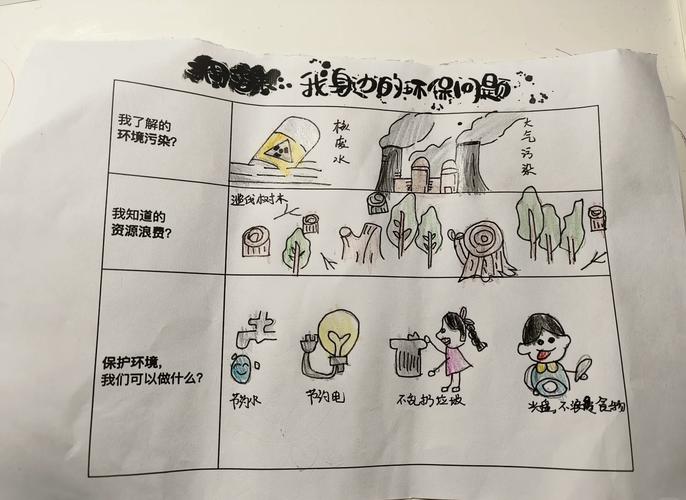 我身边的环保问题
我了解的
环境污染?
核废水
大气污染
我知道的
资源浪费?
滥伐树木
保护环境,
我们可以做什么?
节约水
节约电
不乱扔垃圾
光盘,不浪费食物